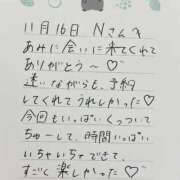 11月16日 Nさんへ
あみに会いに来てくれて
ありがとう〜♡
遠いながらも、予約
してくれてうれしかった♡
今回もいっぱいくっついて
ちゅーして、時間いっぱい
いちゃいちゃできて、
すごく楽しかった♡